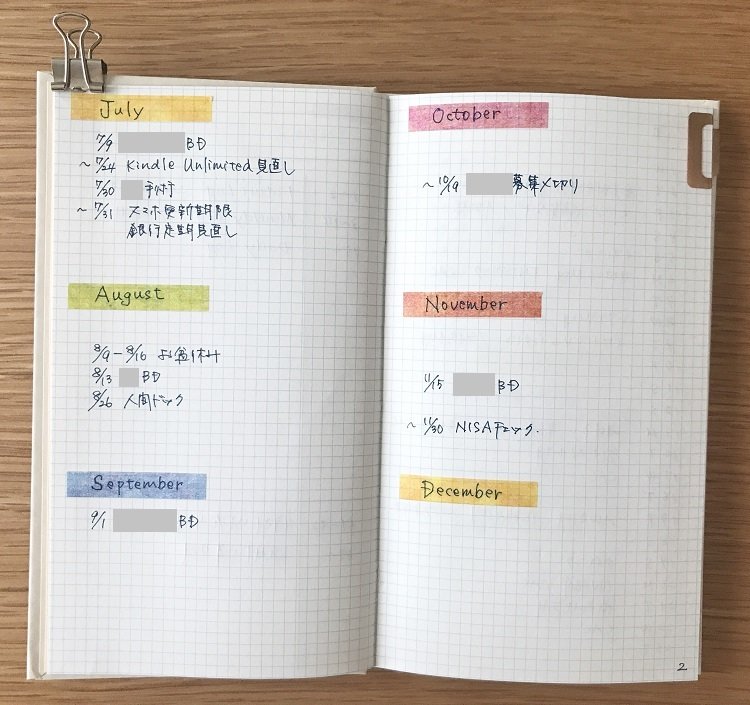 July
7/9 BD
~7/24 Kindle Unlimited 見直し
7/30
~7/31 スマホ更新期限
銀行定期見直し
August
8/9-8/16 お盆休み
8/13 BD
8/26 人間ドック
September
9/1 BD
October
~10/19 募集〆切り
November
11/15 BD
~11/30 NISAチェック.
December
2